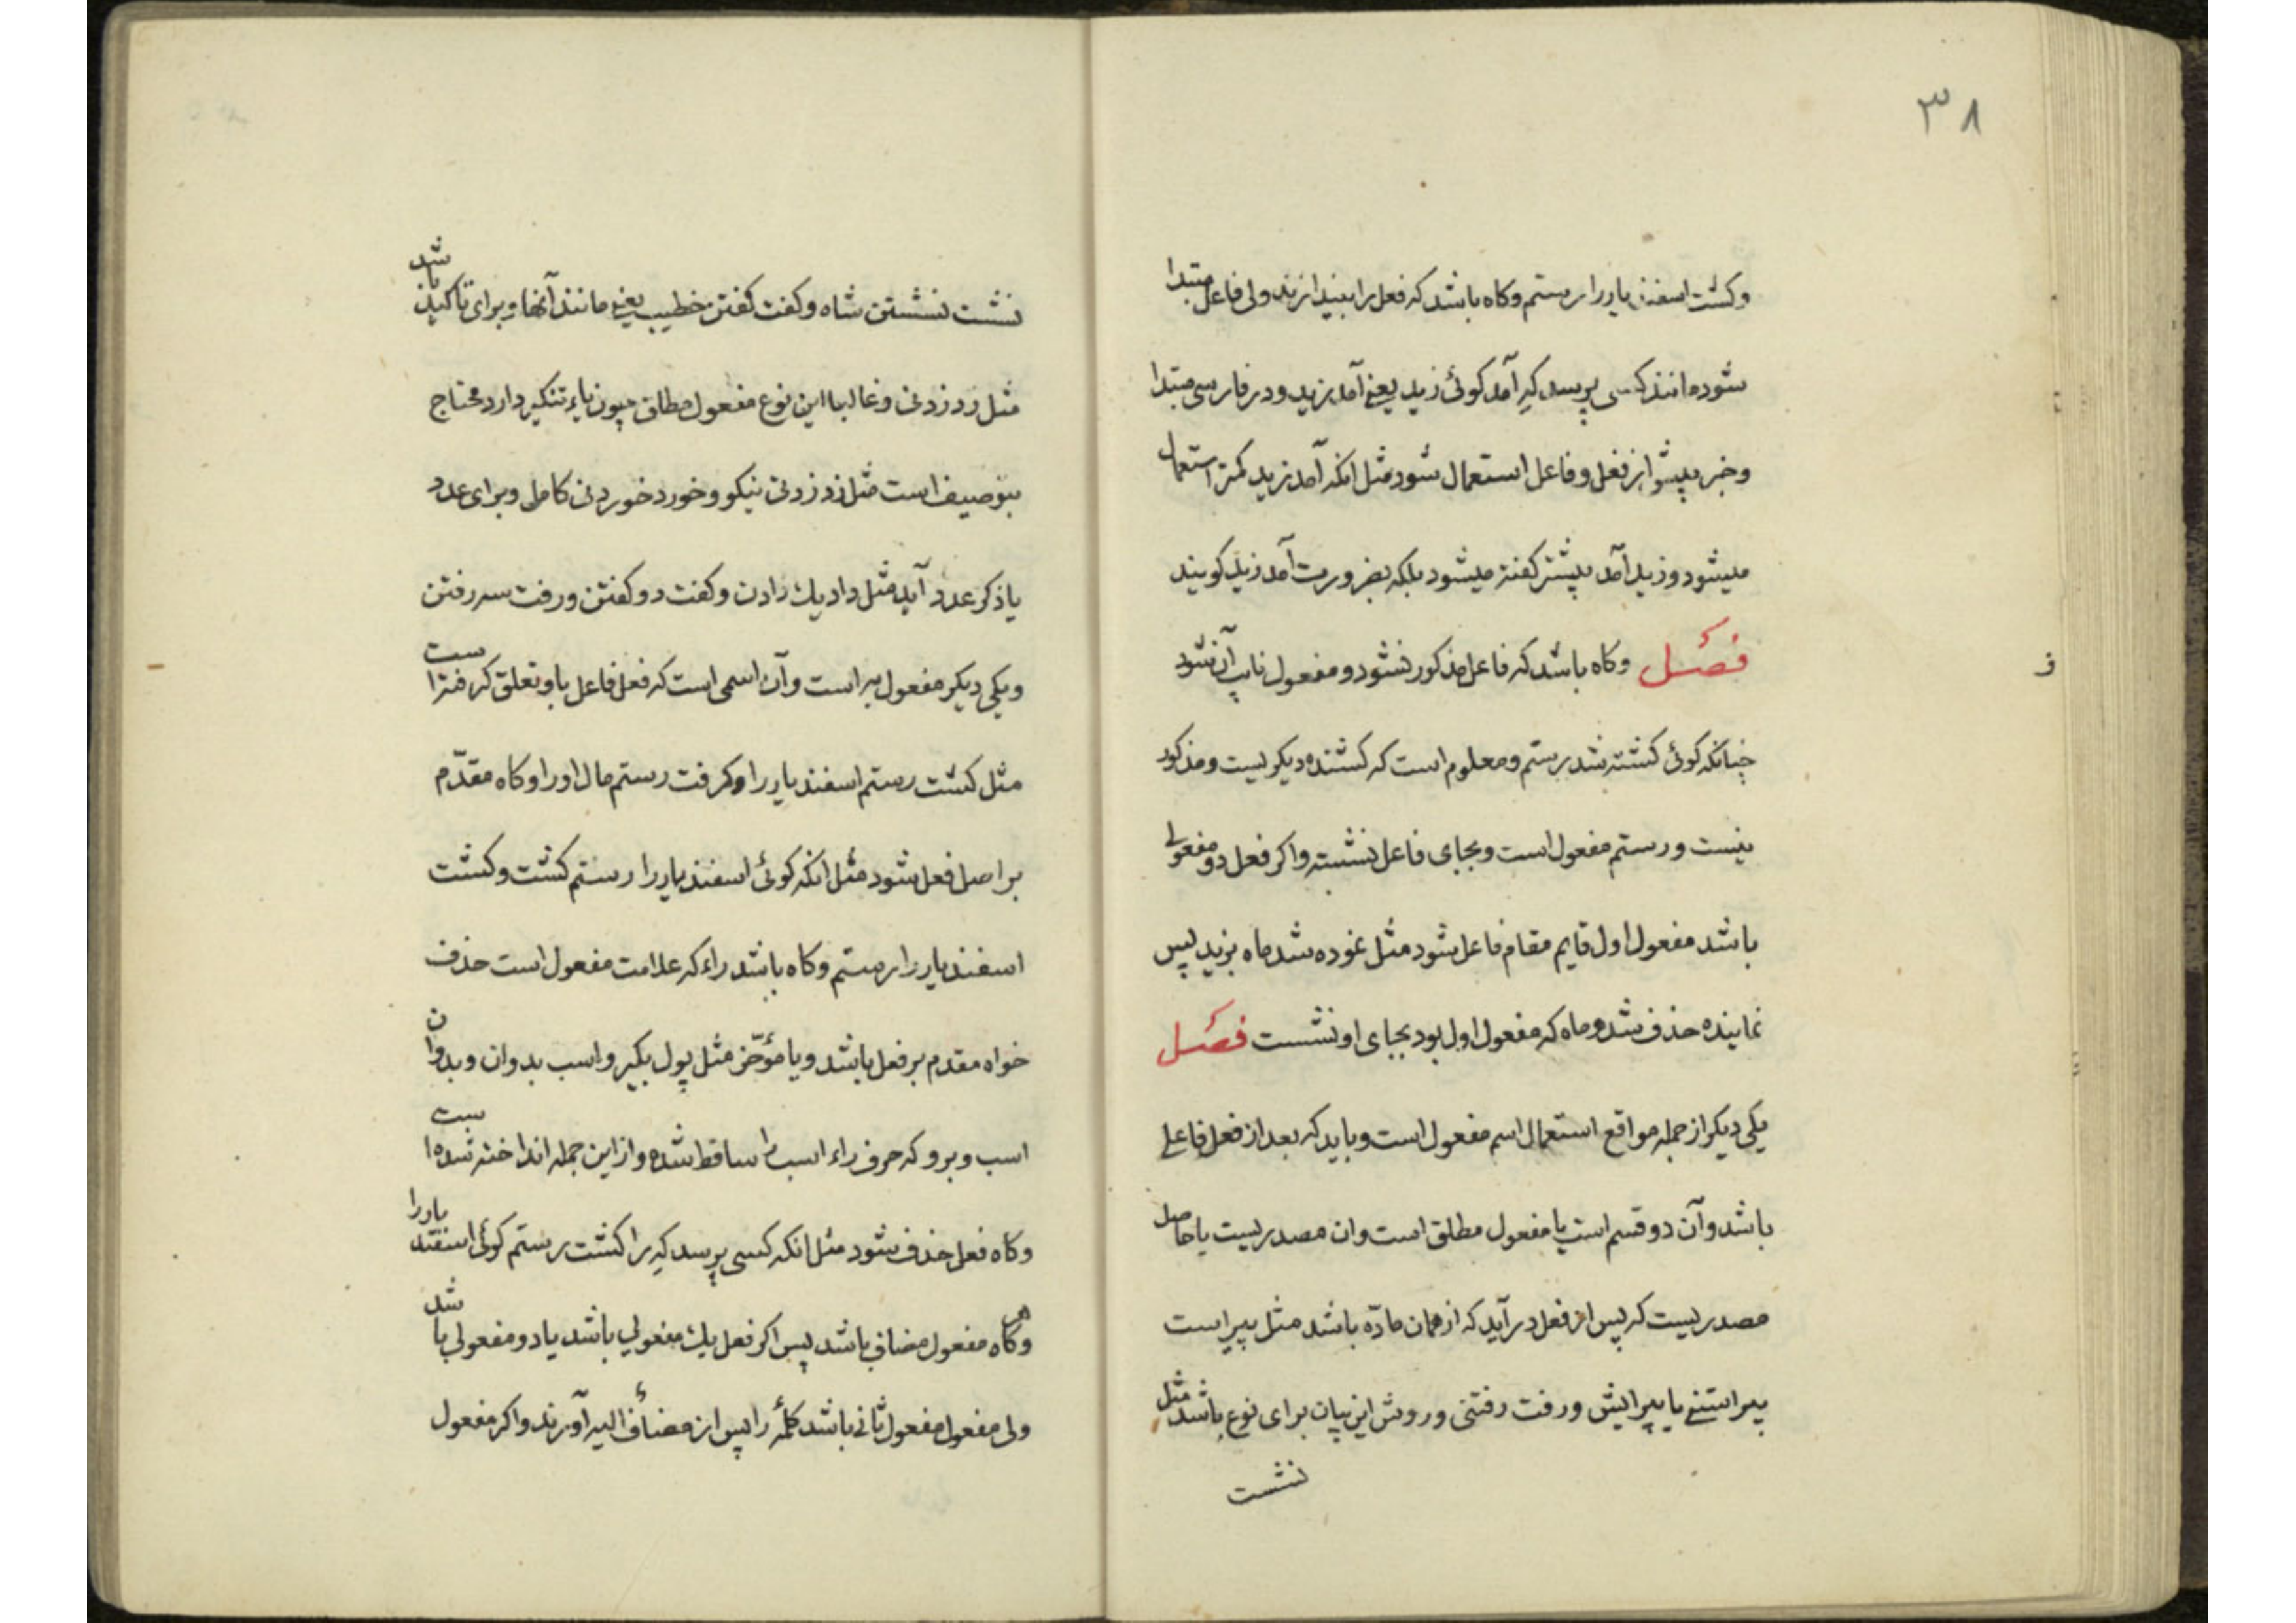 ۳۸
وکشت اسفندیار را رستم وکاه باشد که فعل را بیندازند ولی فاعل مبتدا
شود مانند کسی پرسد که آمد کوئی زید یعنی آمد زید ودر فارسی مبتدا
وخبر بیشتر از فعل وفاعل استعمال شود مثل انکه آمد زید کمتر استعمال
میشود وزید آمد بیشتر کفته میشود بلکه بضرورت آمد زید کویند
فصل وکاه باشد که فاعل مذکور نشود ومفعول نایب آن شود
چنانکه کوئی کشته شد رستم ومعلوم است که کشنده دیکریست ومذکور
نیست ورستم مفعول است وبجای فاعل نشسته واکر فعل دو مفعولی
باشد مفعول اول قایم مقام فاعل شود مثل نموده شد ماه بزید پس
نماینده حذف شد وماه که مفعول اول بود بجای او نشست فصل
یکی دیکر از جمله مواقع استعمال اسم مفعول است وباید که بعد از فعل فاعلی
باشد وآن دو قسم است یا مفعول مطلق است وان مصدریست یا حاصل
مصدریست که پس از فعل در آید که از همان مادّه باشد مثل پیراست
پیراستنی یا پیرایش ورفت رفتنی وروش این بیان برای نوع باشد مثل
نشست
نشست نشستن شاه وکفت کفتن خطیب یعنی مانند آنها وبرای تاکید باشد
مثل زد زدنی وغالبا این نوع مفعول مطلق چون یاء تنکیر دارد محتاج
بتوصیف است مثل زد زدنی نیکو وخورد خوردنی کامل وبرای عدد
یا ذکر عدد آید مثل داد یك دادن وکفت دو کفتن ورفت سه رفتن
ویکی دیکر مفعول به است وآن اسمی است که فعل فاعل باو تعلق کرفته است
مثل کشت رستم اسفندیار را وکرفت رستم مال او را وکاه مقدّم
بر اصل فعل شود مثل انکه کوئی اسفندیار را رستم کشت وکشت
اسفندیار را رستم وکاه باشد راء که علامت مفعول است حذف
خواه مقدم بر فعل باشد ویا مؤخّر مثل پول بکیر واسب بدوان وبدوان
اسب وبرو که حرف راء اسب را ساقط شده واز این جمله انداخته شده است
وکاه فعل حذف شود مثل انکه کسی پرسد که را کشت رستم کوئی اسفندیار را
وکاهی مفعول مضاف باشد پس اکر فعل یك مفعولی باشد یا دو مفعولی باشد
ولی مفعول مفعول ثانی باشد کلمۀ را پس از مضاف الیه آورند واکر مفعول